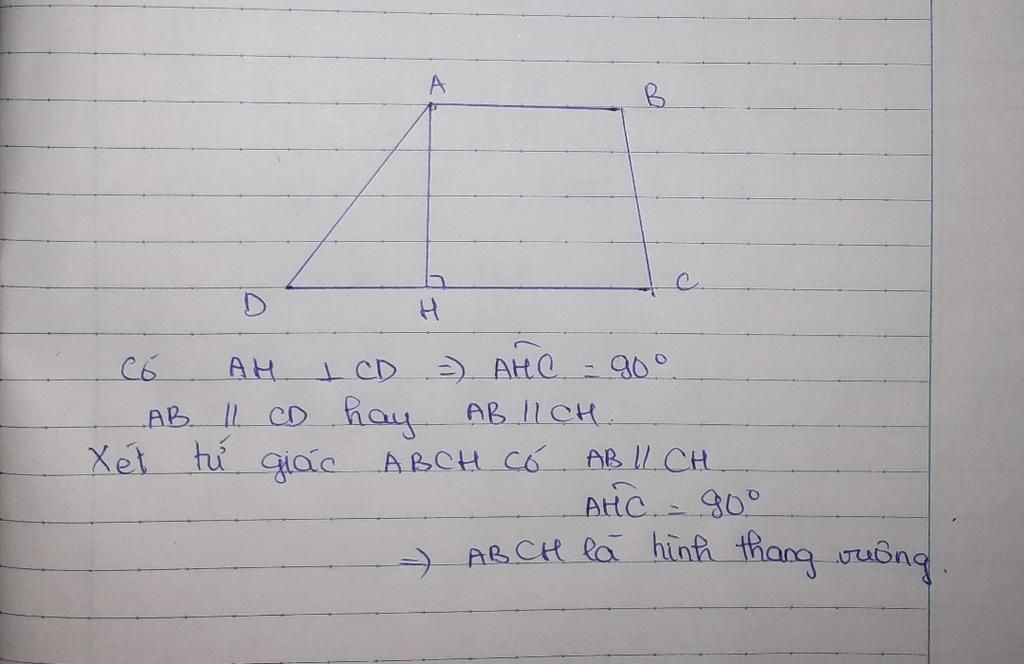 A
B
D
H
C
Có AH ⊥ CD => AHC = 90°
AB // CD hay AB // CH.
Xét tứ giác ABCH có AB // CH
AHC = 90°
=> ABCH là hình thang vuông.